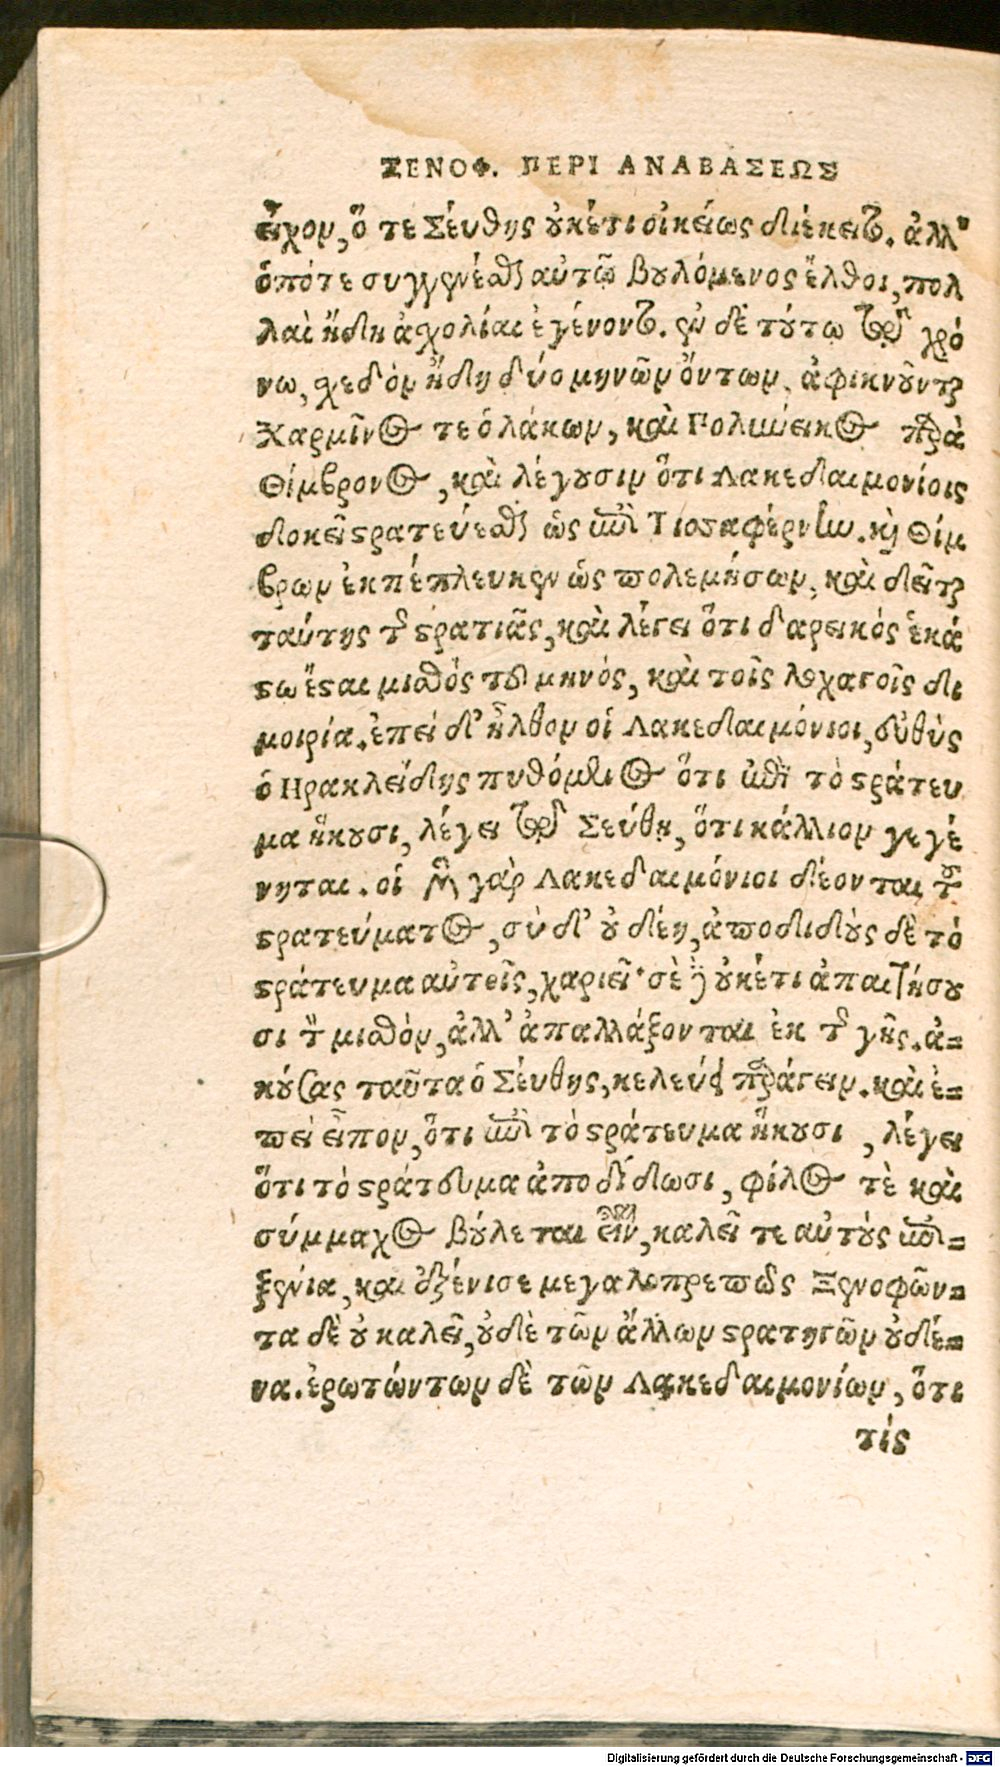 ΞΕΝΟΦ. ΠΕΡΙ ΑΝΑΒΑΣΕΩΣ
εἶχον, ὅ τε Σεύθης οὐκέτι οἰκείως διέκειτο. ἀλλ'
ὁπότε συγγενέσθαι αὐτῷ βουλόμενος ἔλθοι, πολ
λαὶ ἤδη ἀσχολίαι ἐγένοντο. ἐν δὲ τούτω τῷ χρό
νω, σχεδὸν ἤδη δύο μηνῶν ὄντων, ἀφικνοῦνται
Χαρμῖνος τε ὁ λάκων, καὶ Πολύνεικος παρὰ
Θίμβρονος, καὶ λέγουσιν ὅτι Λακεδαιμονίοις
δοκεῖ στρατεύεσθαι ὡς ἐπὶ Τισσαφέρνην. καὶ Θίμ
βρων ἐκπέπλευκεν ὡς πολεμήσων, καὶ δεῖται
ταύτης τῆς στρατιᾶς, καὶ λέγει ὅτι δαρεικὸς ἑκά
στω ἔσται μισθὸς τοῦ μηνός, καὶ τοῖς λοχαγοῖς δι
μοιρία. ἐπεὶ δ' ἦλθον οἱ Λακεδαιμόνιοι, εὐθὺς
ὁ Ηρακλείδης πυθόμενος ὅτι ἐπὶ τὸ στράτευ
μα ἥκουσι, λέγει τῷ Σεύθη, ὅτι κάλλιον γεγέ
νηται. οἱ μὲν γὰρ Λακεδαιμόνιοι δέονται τοῦ
στρατεύματος, σὺ δ' οὐ δέη, ἀποδιδοὺς δὲ τὸ
στράτευμα αὐτοῖς, χαριεῖ· σὲ δὲ οὐκέτι ἀπαιτήσου
σι τὸν μισθὸν, ἀλλ' ἀπαλλάξονται ἐκ τῆς γῆς. ἀ-
κούσας ταῦτα ὁ Σεύθης, κελεύει παράγειν. καὶ ἐ-
πεὶ εἶπον, ὅτι ἐπὶ τὸ στράτευμα ἥκουσι, λέγει
ὅτι τὸ στράτευμα ἀποδίδωσι, φίλος τὲ καὶ
σύμμαχος βούλεται εἶναι, καλεῖ τε αὐτοὺς ἐπὶ-
ξενία, καὶ ἐξένισε μεγαλοπρεπῶς Ξενοφῶν-
τα δὲ οὐ καλεῖ, οὐδὲ τῶν ἄλλων στρατηγῶν οὐδέ-
να. ἐρωτώντων δὲ τῶν Λακεδαιμονίων, ὅτι
τίς
Digitalisierung gefördert durch die Deutsche Forschungsgemeinschaft - DFG